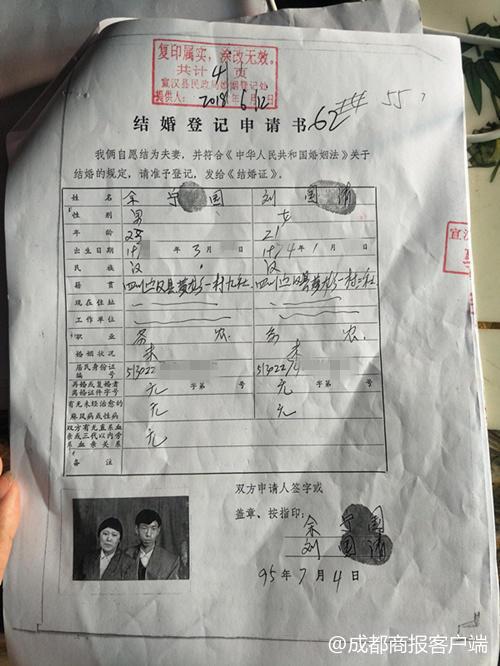 复印属实,涂改无效。
共计4页
宣汉县民政局婚姻登记处
提供人: 2018年6月12
结婚登记申请书
我俩自愿结为夫妻,并符合《中华人民共和国婚姻法》关于
结婚的规定,请准予登记,发给《结婚证》。
姓名 余宁国 刘国清
性别 男 女
年龄 25 21
出生日期 年3月 日 1974年1月 日
民族 汉 汉
籍贯 四川宣汉县
现在住址
工作单位
职业 务农 务农
婚姻状况 未 未
居民身份证编号 513022 513022
再婚或复婚者离婚证件字号 无 字第 号 无 字第 号
有无未经治愈的麻风病或性病 无 无
双方有无直系血亲或三代以内旁系血亲关系 无
备注
双方申请人签字或
盖章、按指印:
余宁国
刘国清
95年7月4日
@成都商报客户端